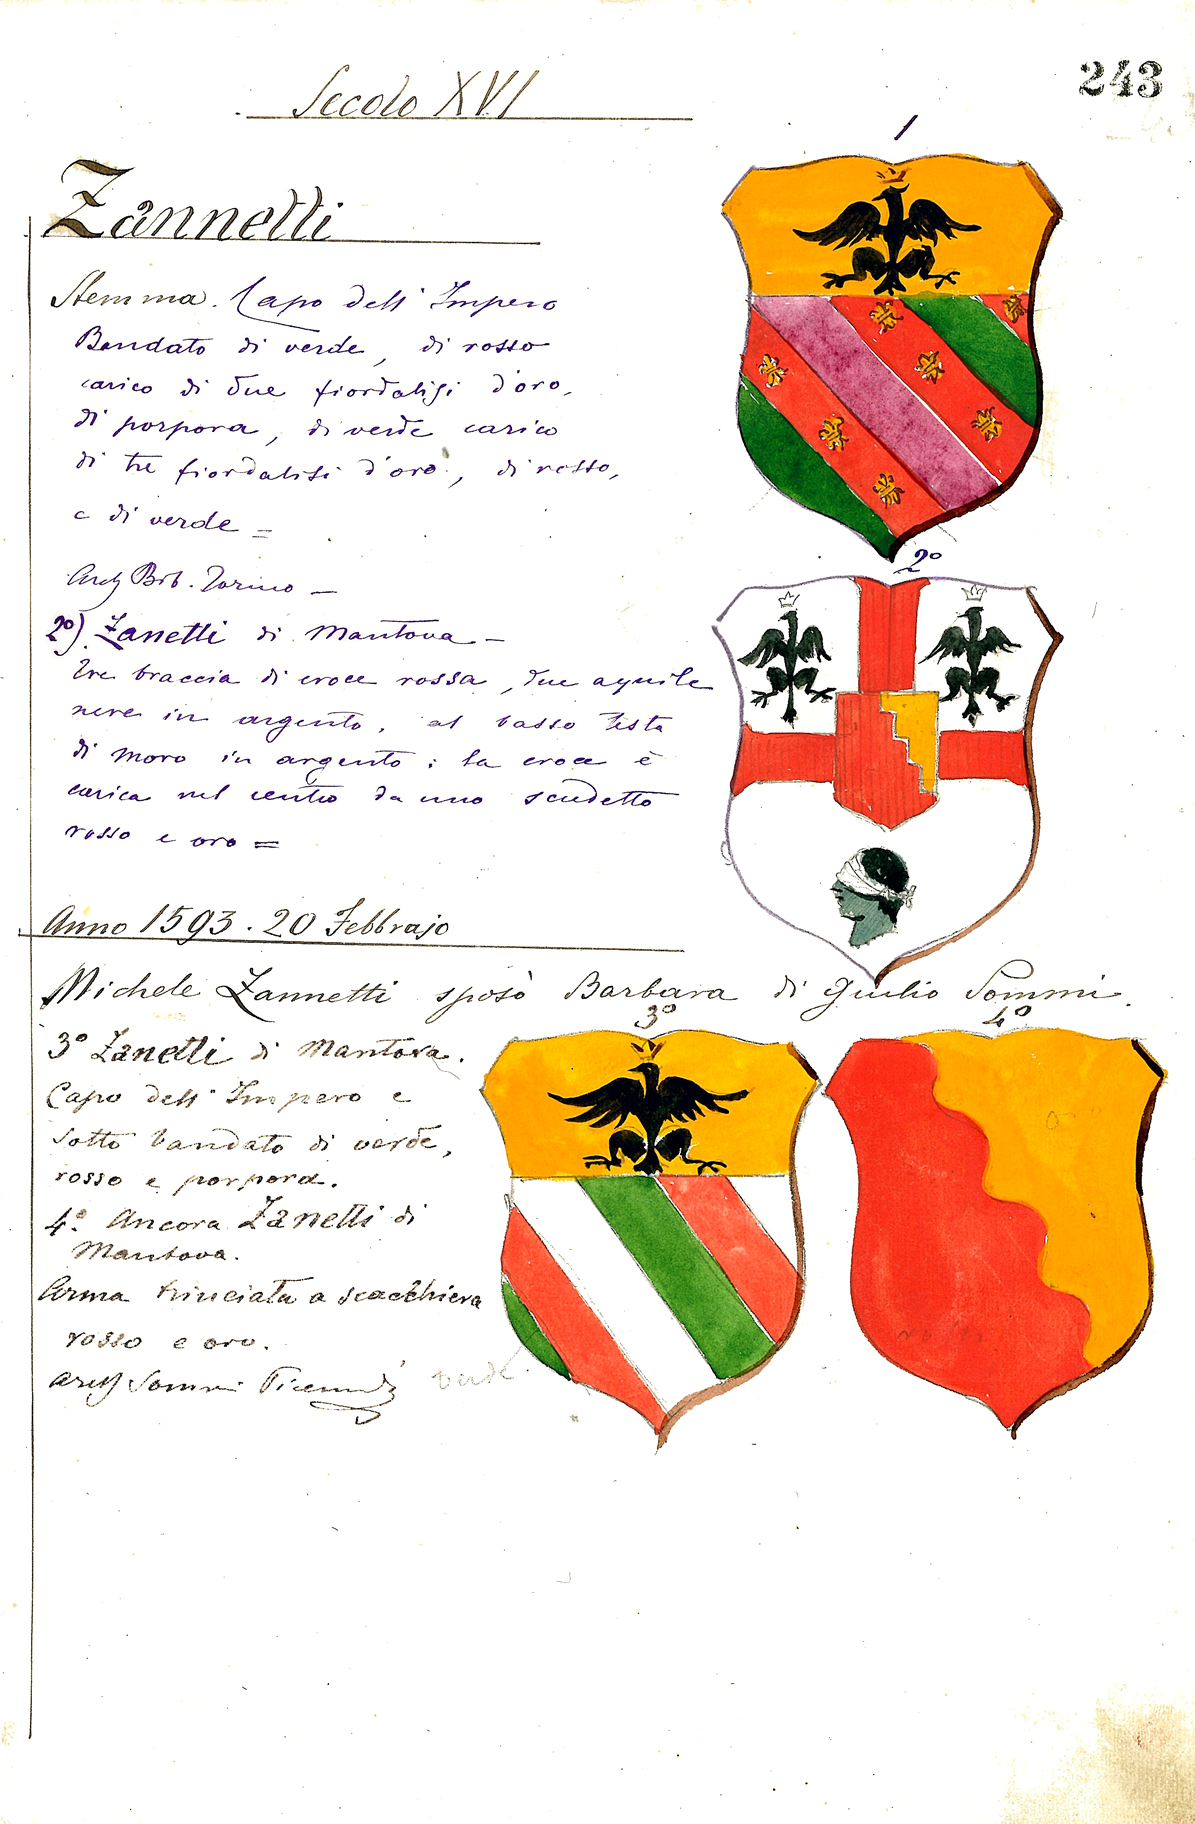 243
Secolo XVI
1
Zannetti
Stemma. Capo dell' Impero
Bandato di verde, di rosso
carico di due fiordalisi d'oro,
di porpora, di verde carico
di tre fiordalisi d'oro, di rosso,
e di verde =
Arch Bib. Torino —
2°
2°) Zanetti di Mantova —
Tre braccia di croce rossa, due aquile
nere in argento, al basso testa
di moro in argento: la croce è
carica nel centro da uno scudetto
rosso e oro =
Anno 1593. 20 Febbrajo
Michele Zannetti sposò Barbara di Giulio Sommi.
3°
4°
3° Zanetti di Mantova.
Capo dell' Impero e
sotto bandato di verde,
rosso e porpora.
4° Ancora Zanetti di
Mantova.
Arma trinciata a scacchiera
rosso e oro.
Arch Sommi Picenardi
verde